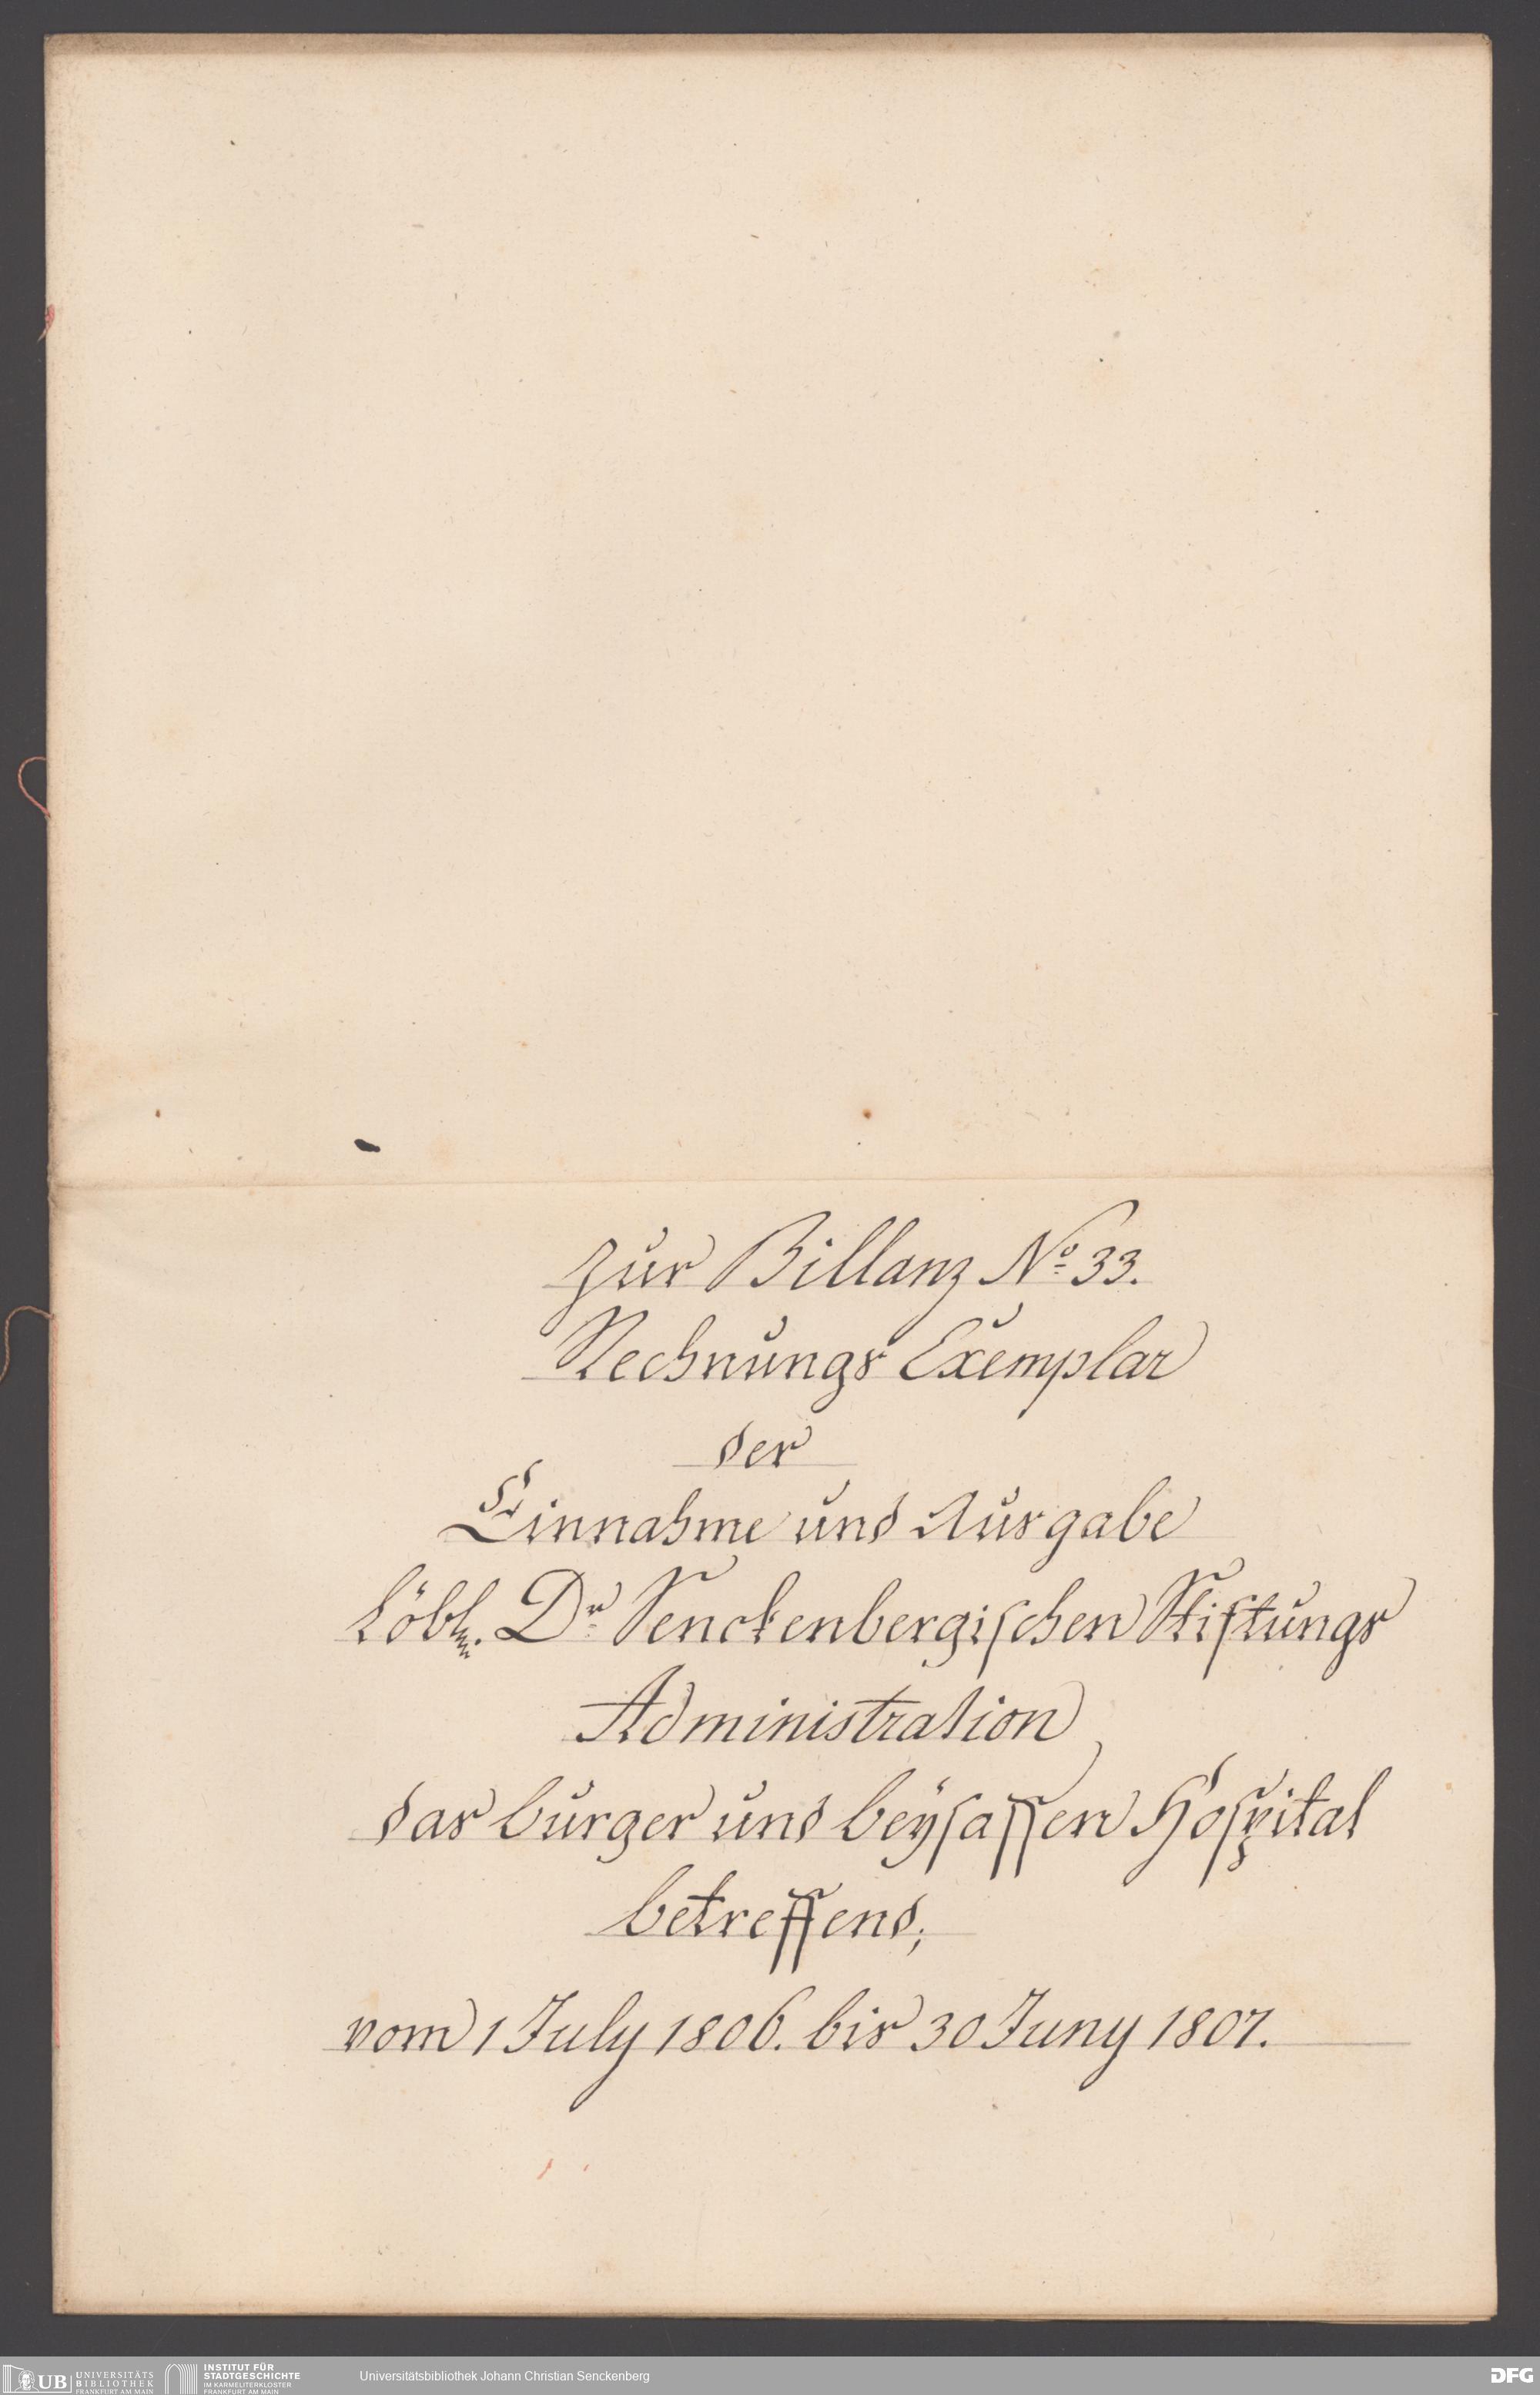 zur Billanz No 33.
Rechnungs Exemplar
der
Einnahme und Ausgabe
Löbl. Dr Senckenbergischen Stiftungs
Administration
das burger und beysassen Hospital
betreffend;
vom 1 July 1806. bis 30 Juny 1807.
UB UNIVERSITÄTS
BIBLIOTHEK
FRANKFURT AM MAIN
INSTITUT FÜR
STADTGESCHICHTE
IM KARMELITERKLOSTER
FRANKFURT AM MAIN
Universitätsbibliothek Johann Christian Senckenberg
DFG